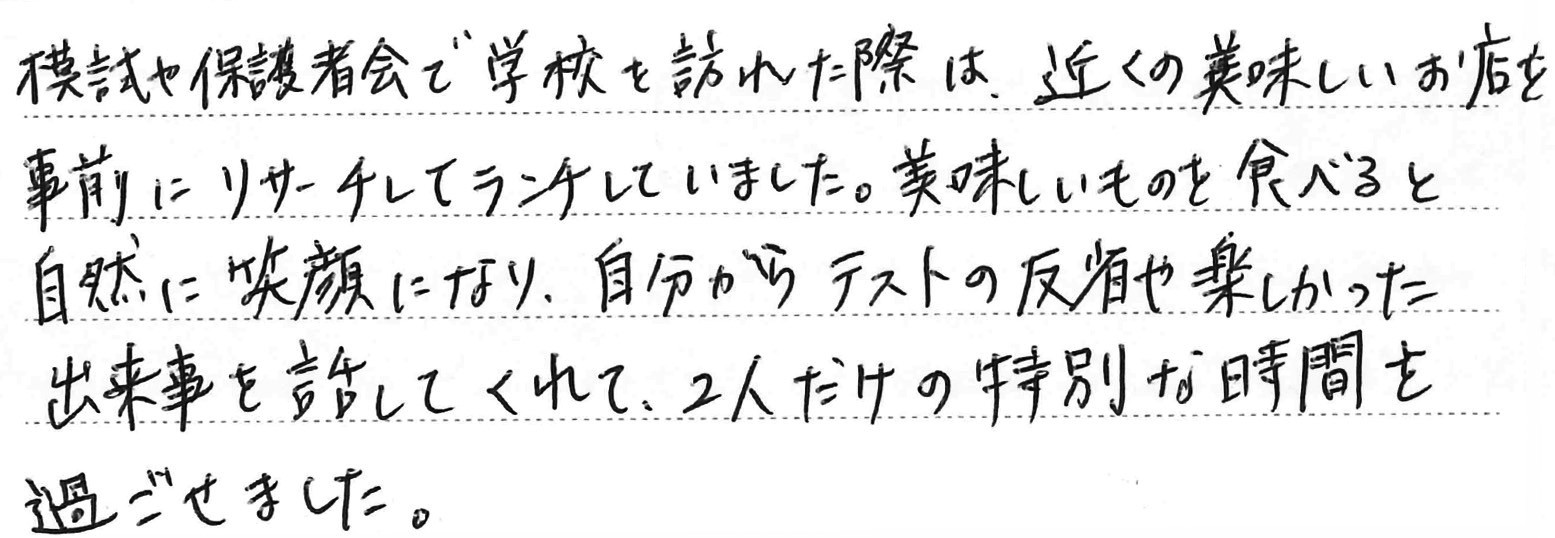 模試や保護者会で学校を訪れた際は、近くの美味しいお店を
事前にリサーチしてランチしていました。美味しいものを食べると
自然に笑顔になり、自分からテストの反省や楽しかった
出来事を話してくれて、2人だけの特別な時間を
過ごせました。